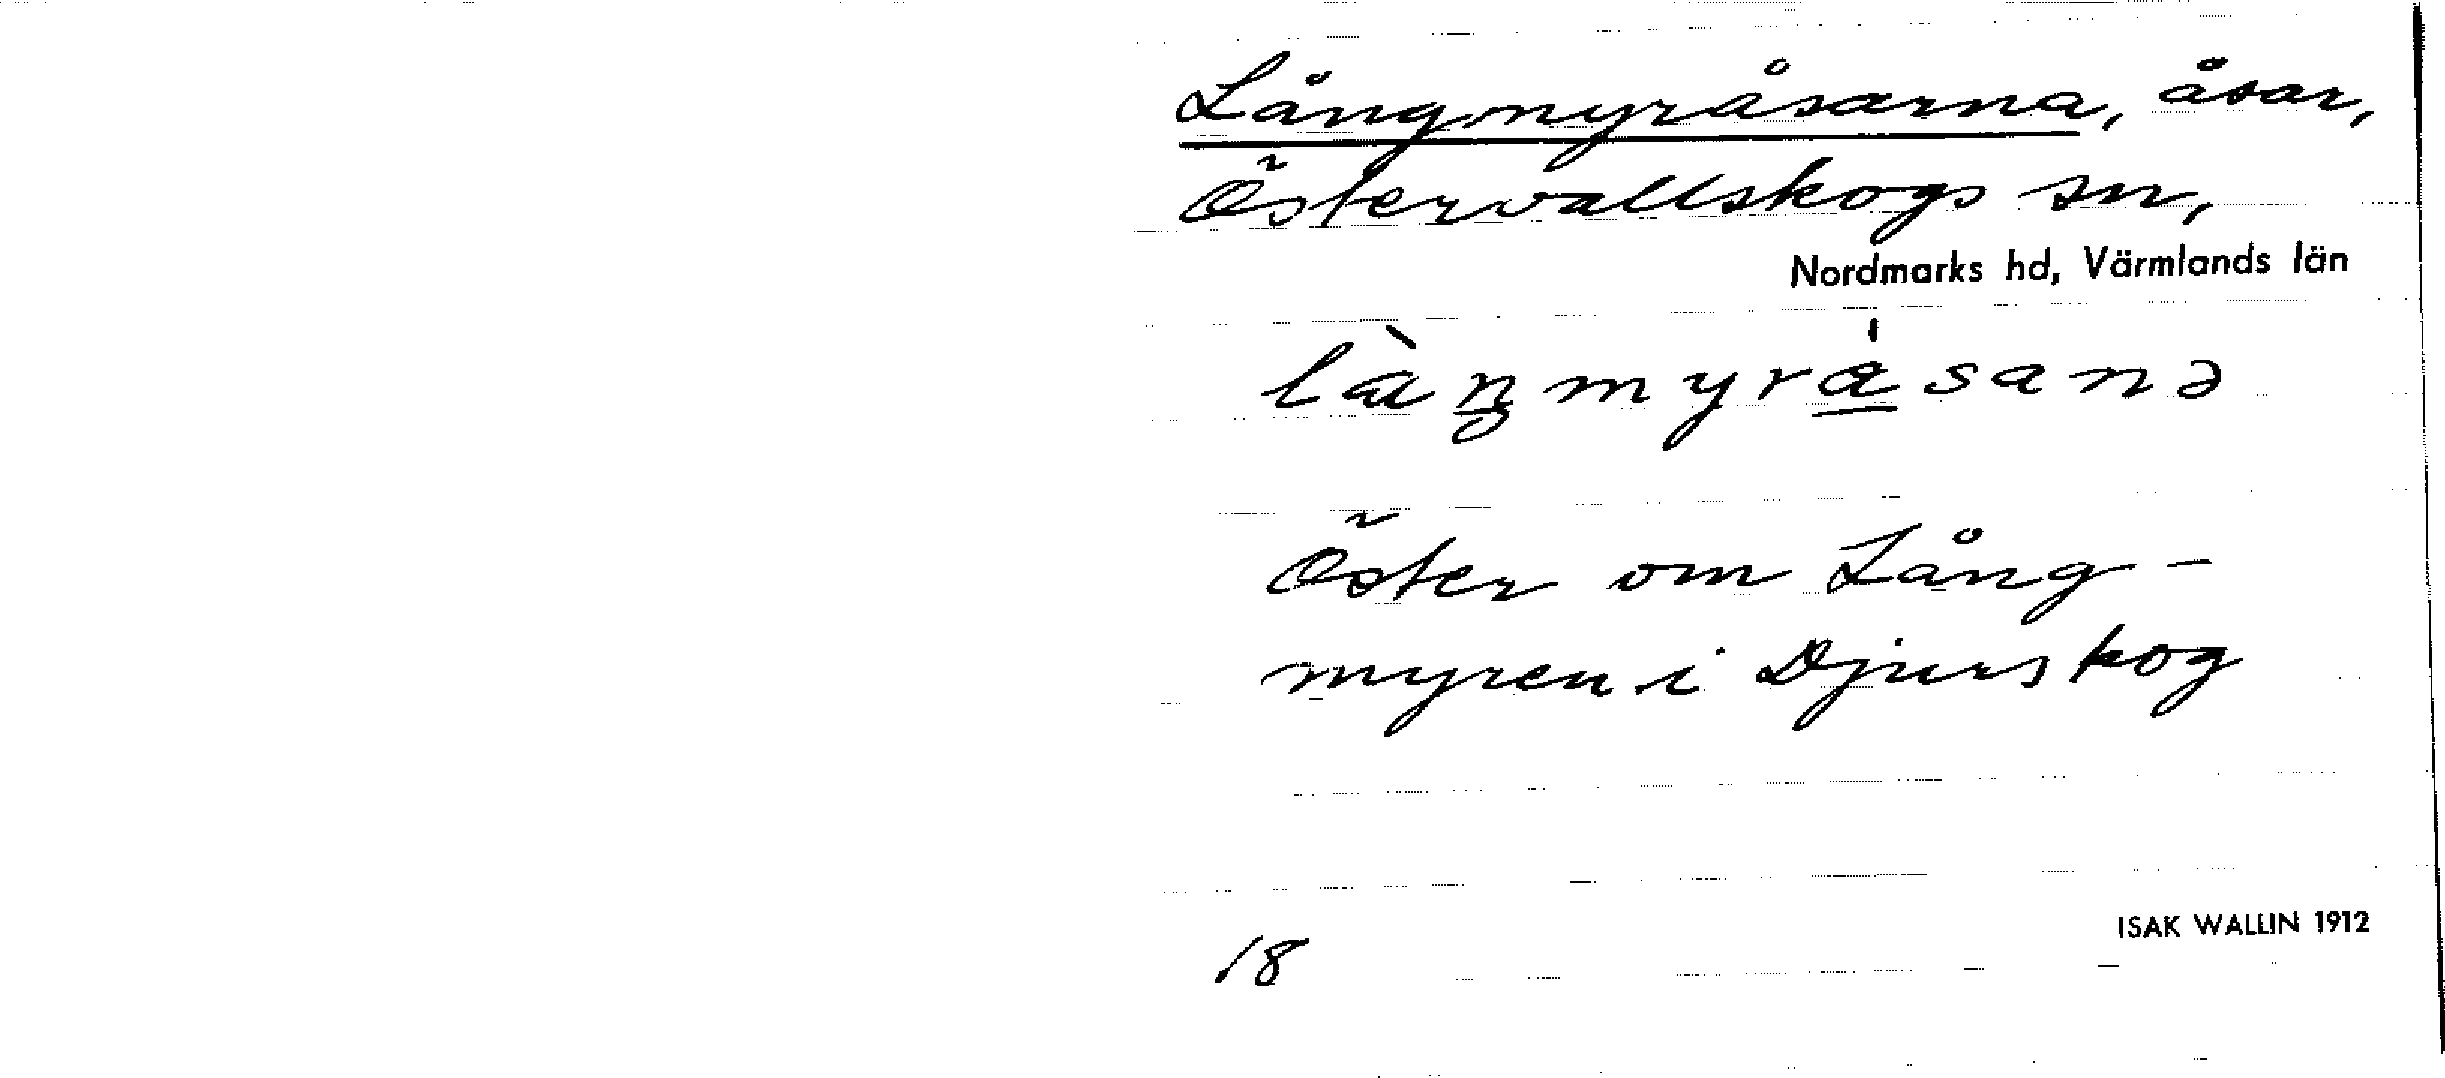 Långmyråsarna, åsar,
Östervallskogs sn,
Nordmarks hd, Värmlands län
làŋmyra̍sanə
Öster om Lång-
myren i Djurskog
ISAK WALLIN 1912
18